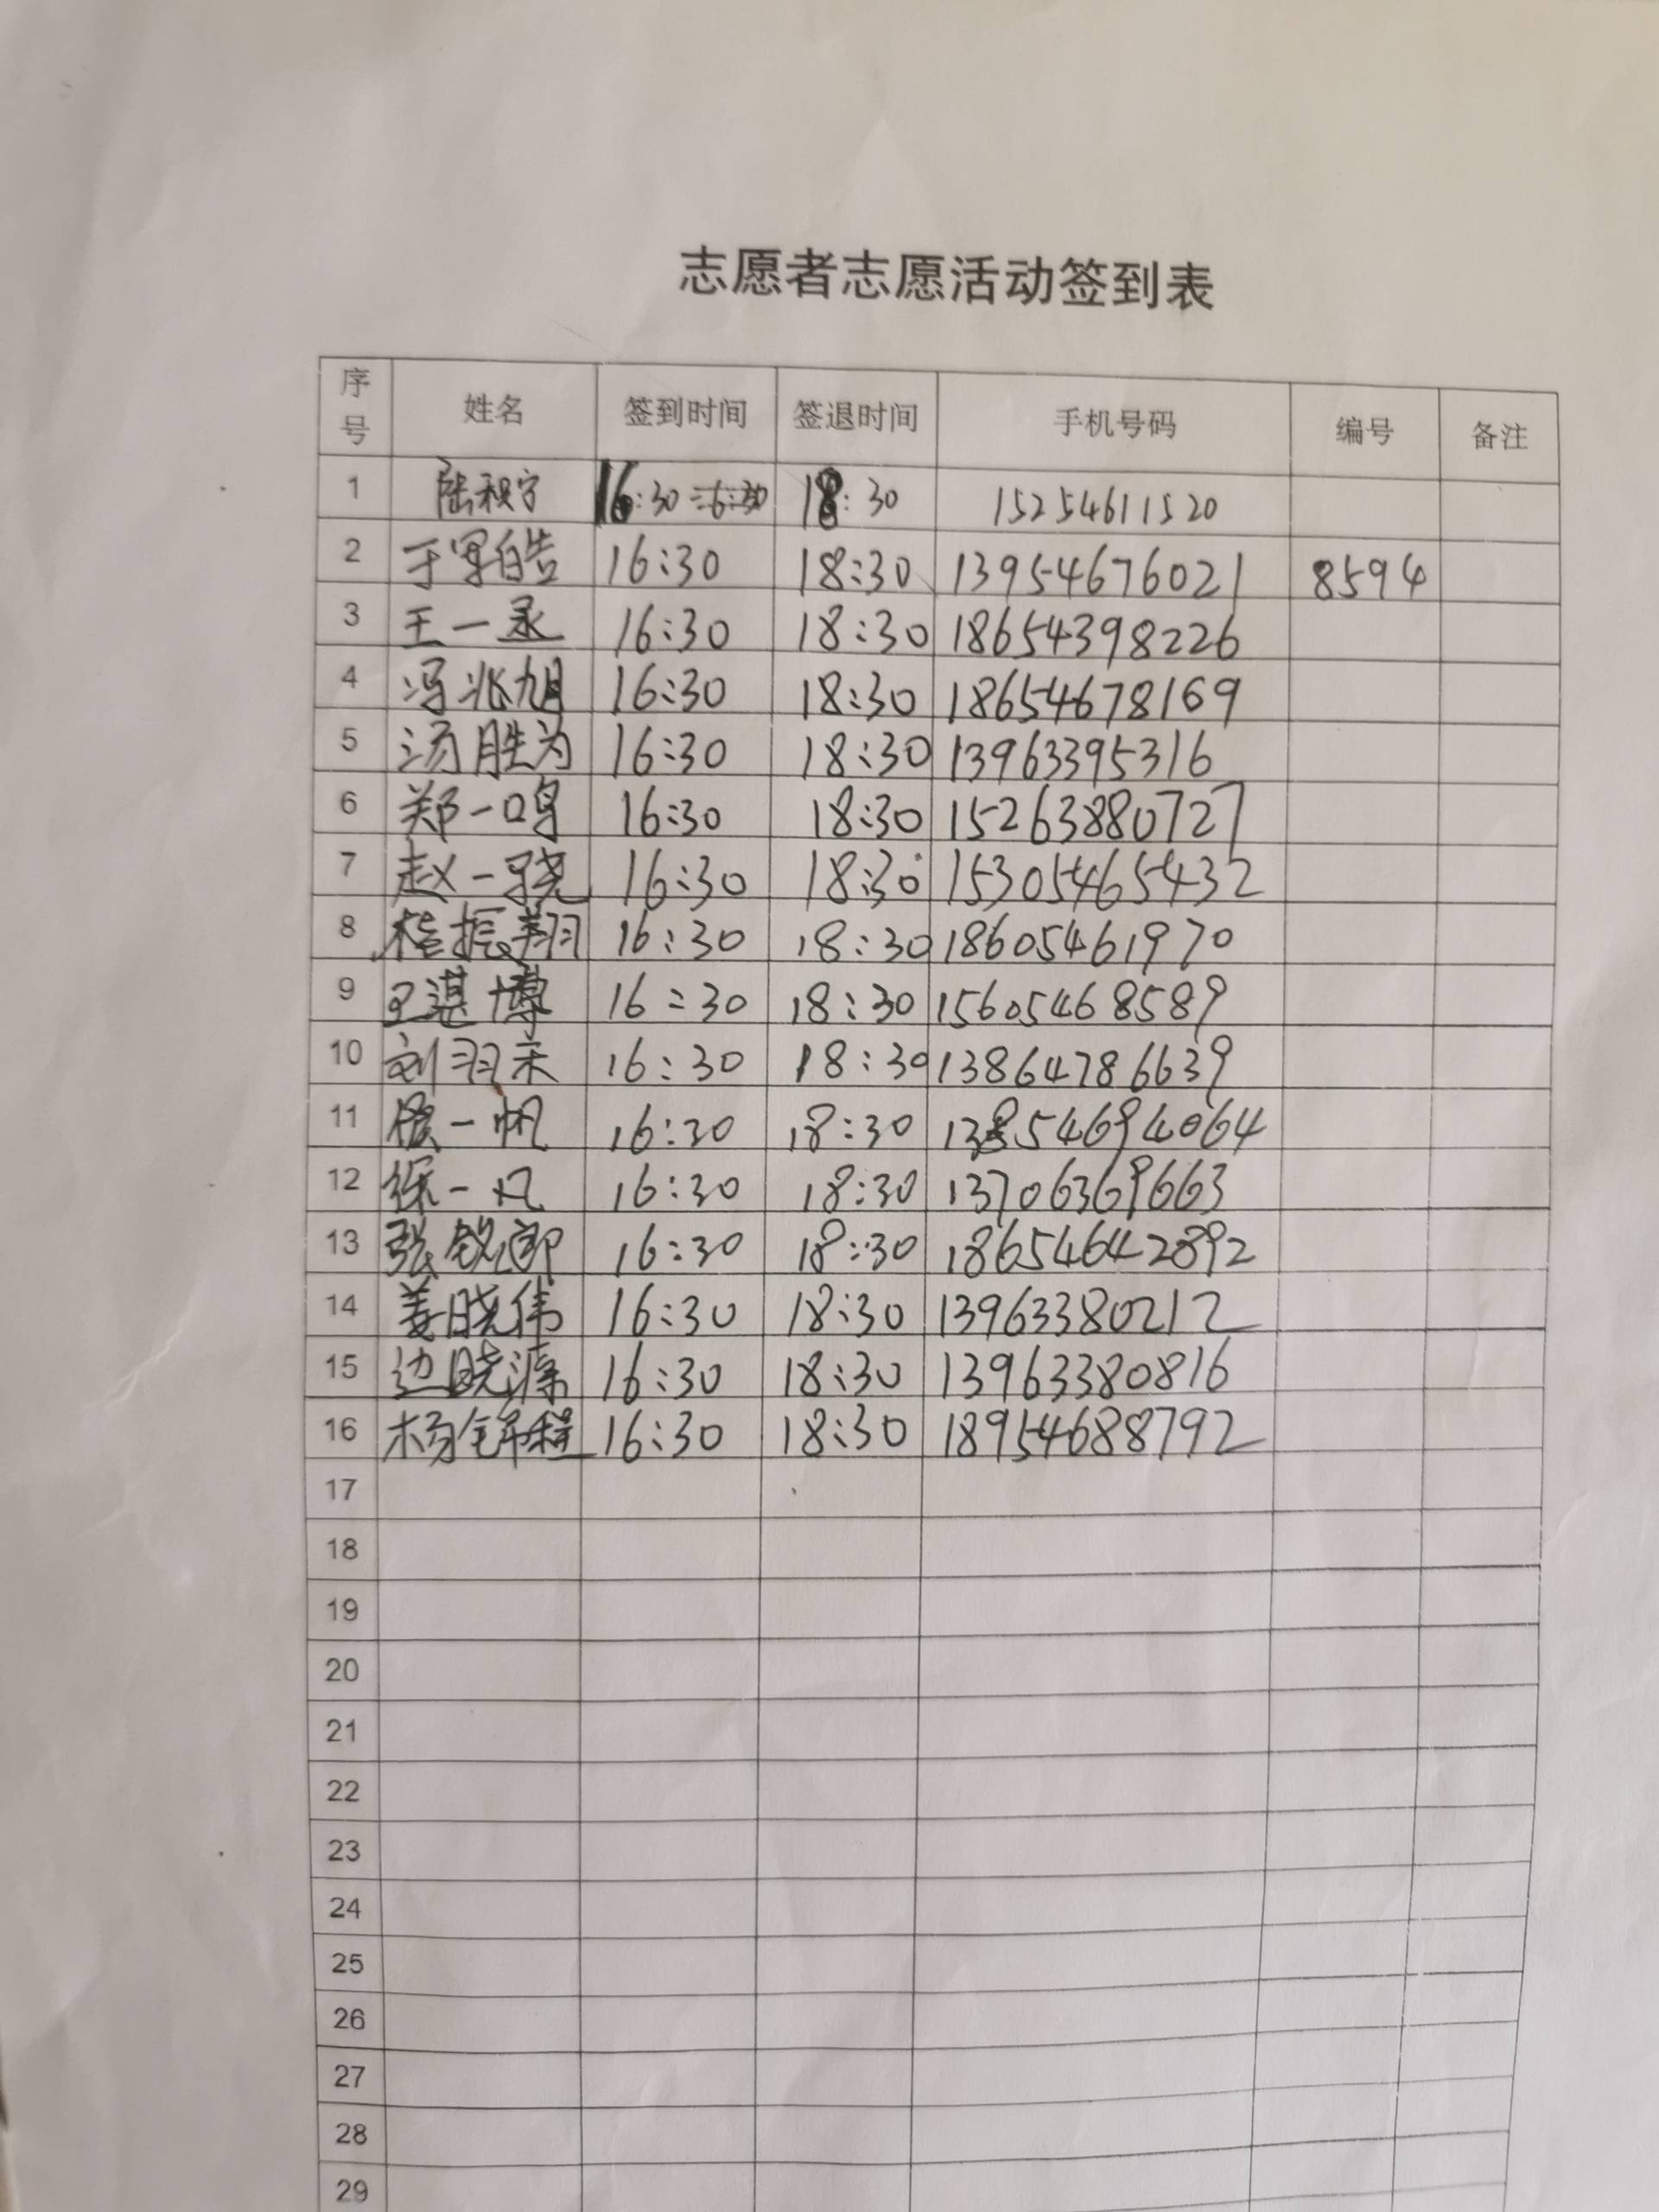 志愿者志愿活动签到表
序号 姓名 签到时间 签退时间 手机号码 编号 备注
1 16:30 18:30 15254611520
2 于军皓 16:30 18:30 13954676021 8594
3 王一丞 16:30 18:30 18654398226
4 冯兆旭 16:30 18:30 18654678169
5 汤胜为 16:30 18:30 13963395316
6 郑一鸣 16:30 18:30 15263880727
7 赵一骁 16:30 18:30 15305465432
8 振翔 16:30 18:30 18605461970
9 王湛博 16:30 18:30 15605468589
10 刘羽禾 16:30 18:30 13864786639
11 一帆 16:30 18:30 13854694064
12 徐一凡 16:30 18:30 13706369663
13 张锐郎 16:30 18:30 18654642892
14 姜晓伟 16:30 18:30 13963380212
15 边晓源 16:30 18:30 13963380816
16 杨锦程 16:30 18:30 18954688792
17
18
19
20
21
22
23
24
25
26
27
28
29